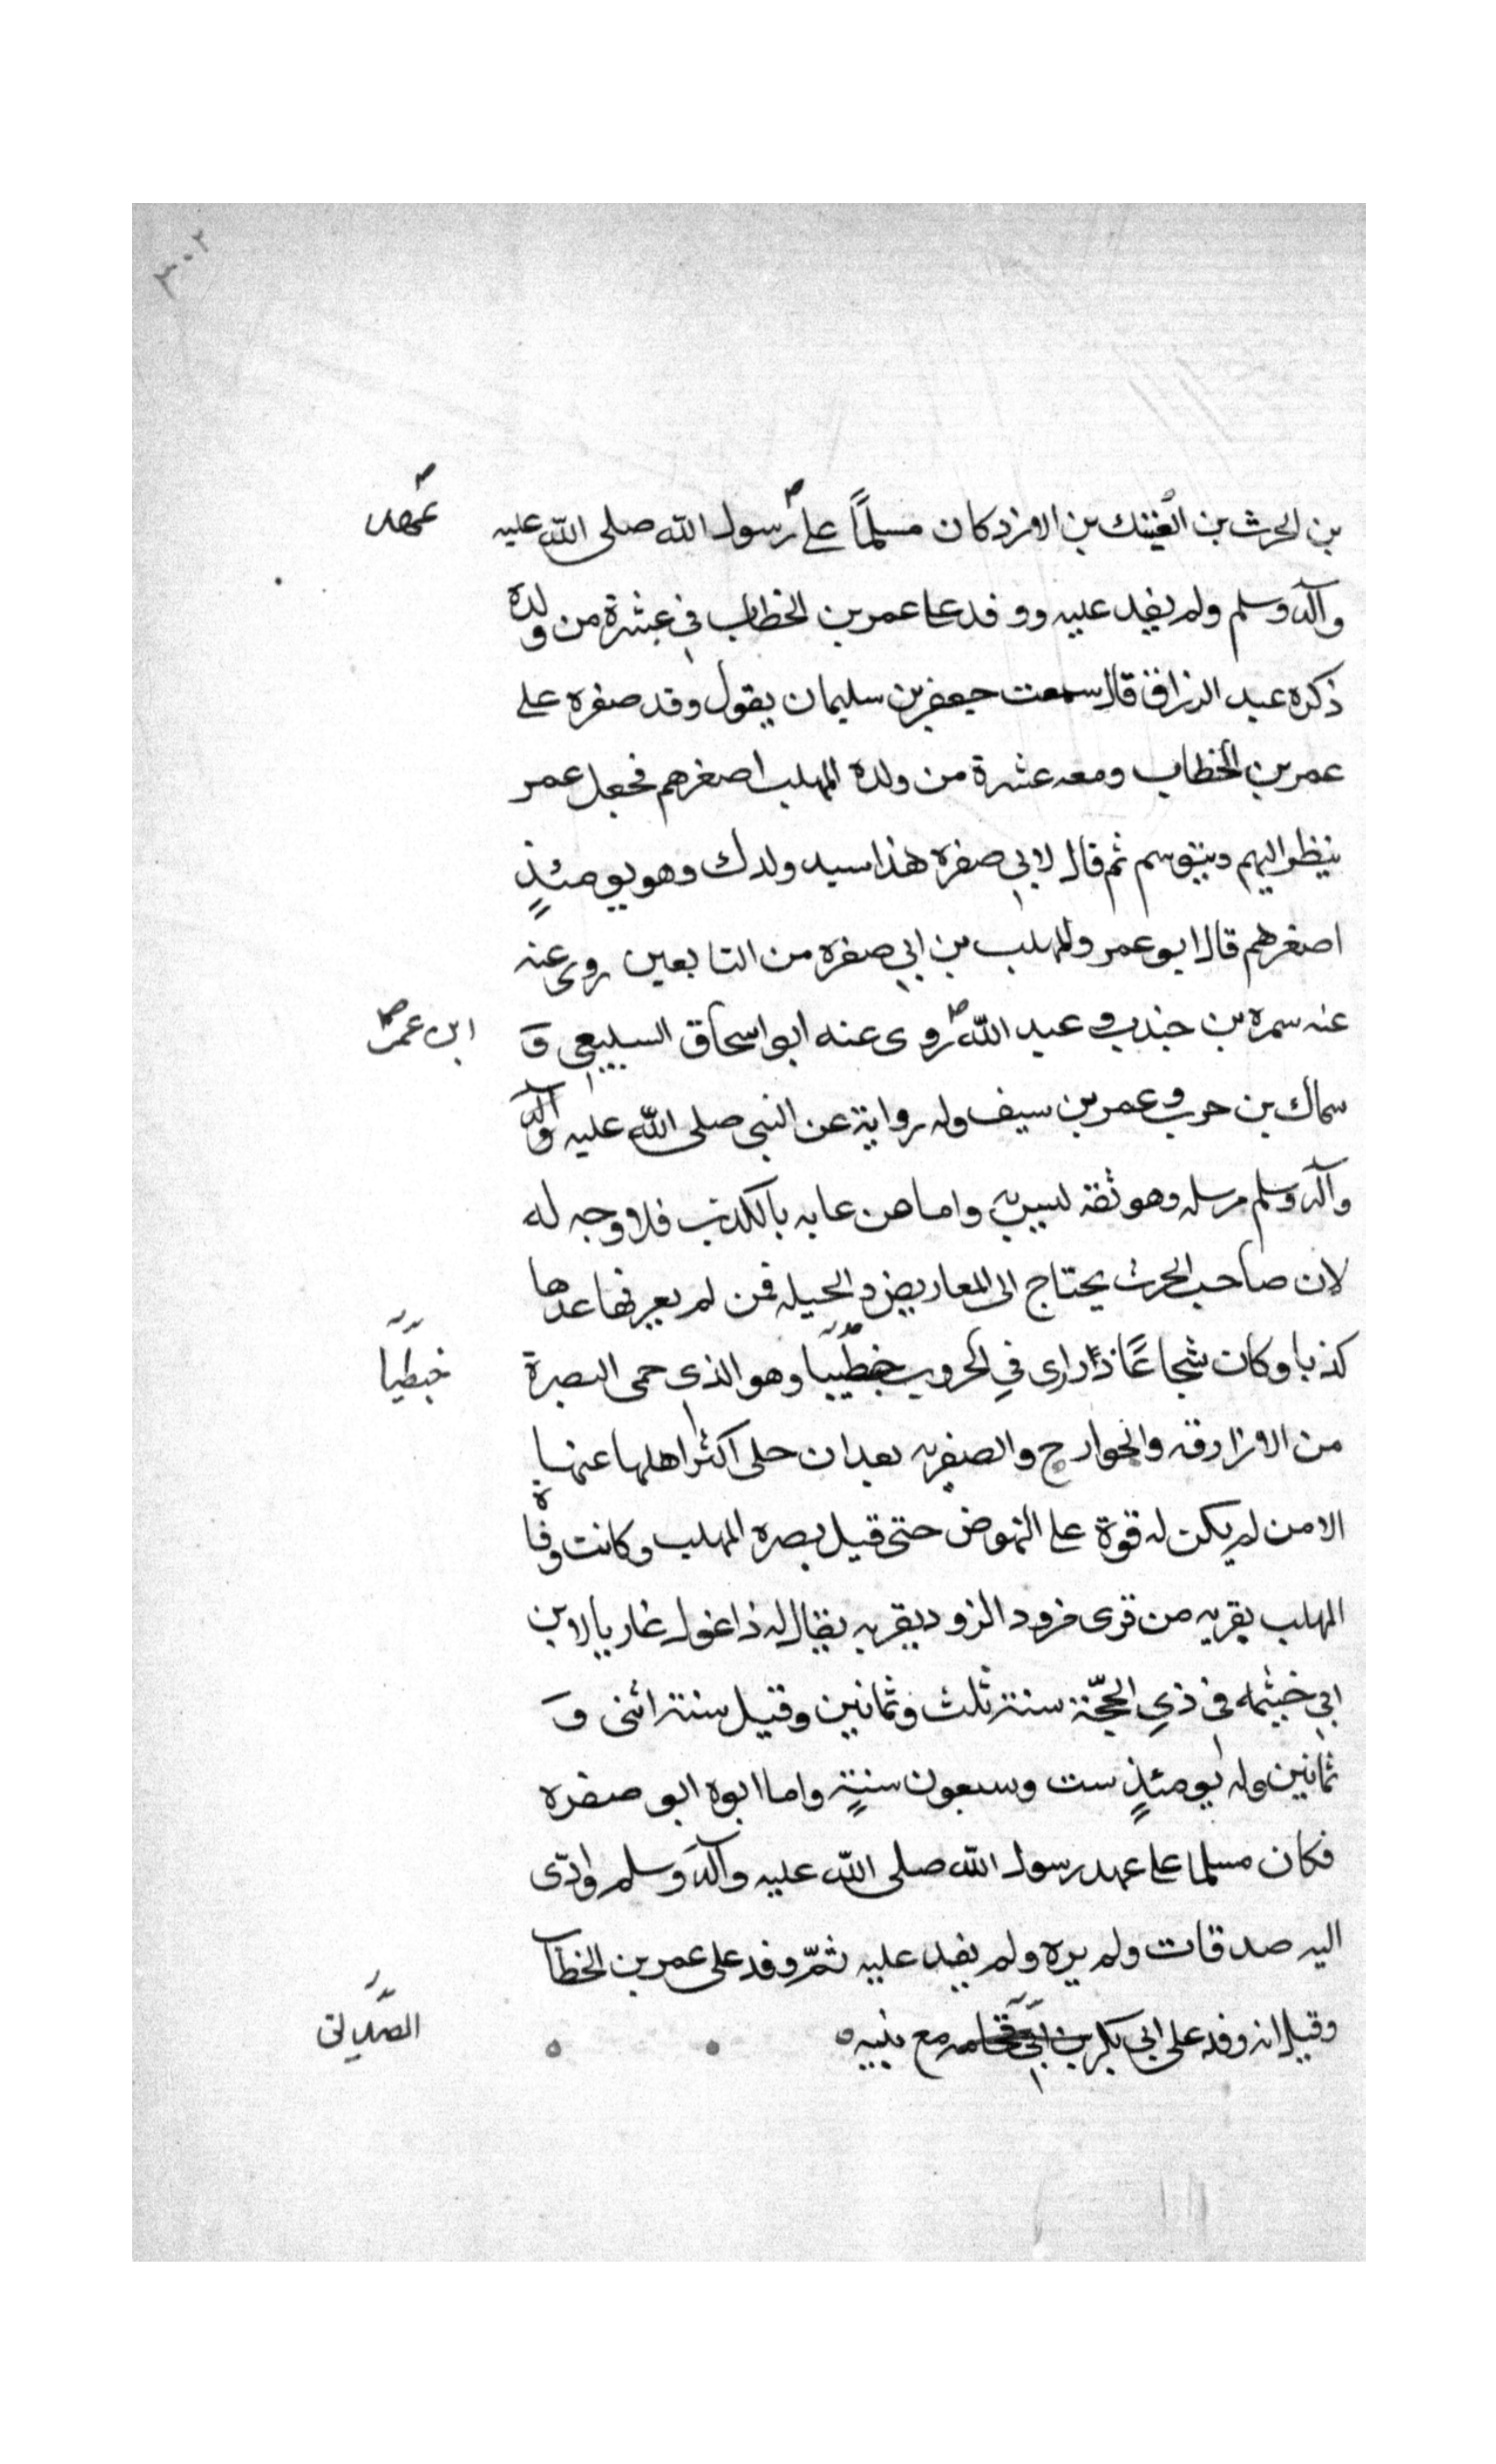 ٣٠٢
بن الحرث بن العتيك بن الازد كان مسلمًا على رسول الله صلى الله عليه
عهد
وآله وسلم ولم يفد عليه ووفد على عمر بن الخطاب في عشرة من ولده
ذكره عبد الرزاق قال سمعت جعفر بن سليمان يقول وفد صفره على
عمر بن الخطاب ومعه عشرة من ولده المهلب اصغرهم فجعل عمر
ينظر اليهم ويتوسم ثم قال لابي صفره هذا سيد ولدك وهو يومئذٍ
اصغرهم قال ابو عمر والمهلب بن ابي صفره من التابعين روى عنه
عنه سمره بن جندب و عبد الله روى عنه ابو اسحاق السبيعي وَ
ابن عمر
سماك بن حرب وعمر بن سيف وله رواية عن النبي صلى الله عليه وآله
وآله وسلم مرسله وهو ثقه ليس به واما من عابه بالكذب فلا وجه له
لان صاحب الحرث يحتاج الى المعاريض والحيله فمن لم يعرفها عدها
كذبا وكان شجاعًا ذا راى في الحروب خطيبا وهو الذى حمى البصرة
خطيبا
من الازارقه والخوارج والصفريه بعد ان جلى اكثر اهلها عنها
الا من لم يكن له قوة على النهوض حتى قيل بصره المهلب وكانت وفاة
المهلب بقريه من قرى مرود الرود بقريه يقال له ذاغول غاريا لابن
ابي خيثمه في ذي الحجّة سنة ثلث وثمانين وقيل سنة اثنى وَ
ثمانين وله يومئذٍ ست وسبعون سنةٍ واما ابوه ابو صفره
فكان مسلما على عهد رسول الله صلى الله عليه وآله وسلم وادّى
اليه صدقات ولم يره ولم يفد عليه ثمّ وفد على عمر بن الخطاب
وقيل انه وفد على ابي بكر بن ابي قحافه مع بنيه